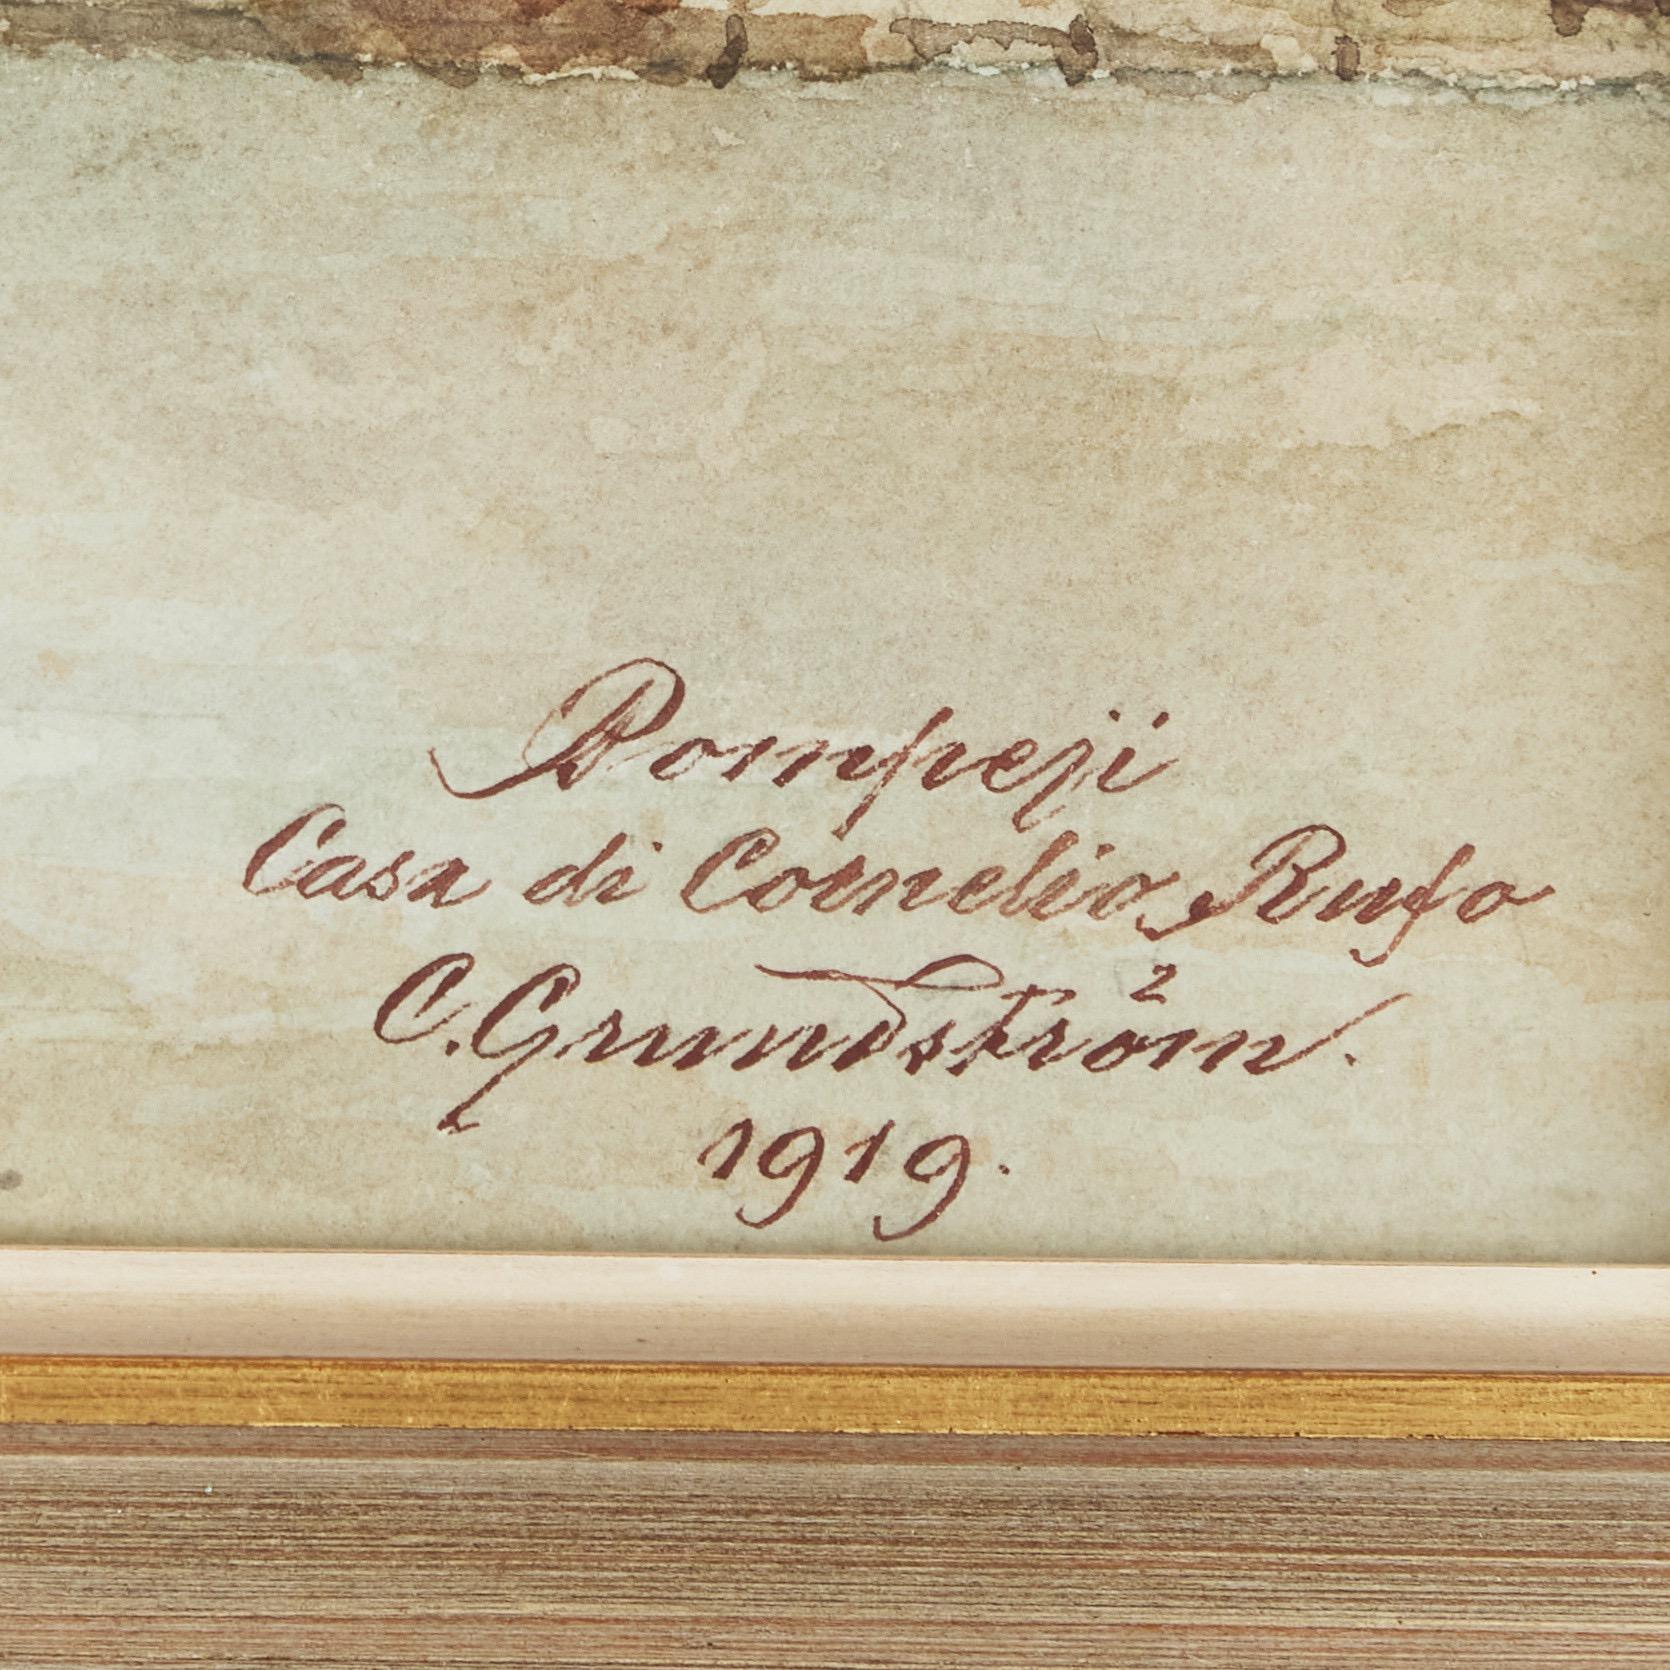 Pompeji
Casa di Cornelio Rufo
C. Grundström.
1919.